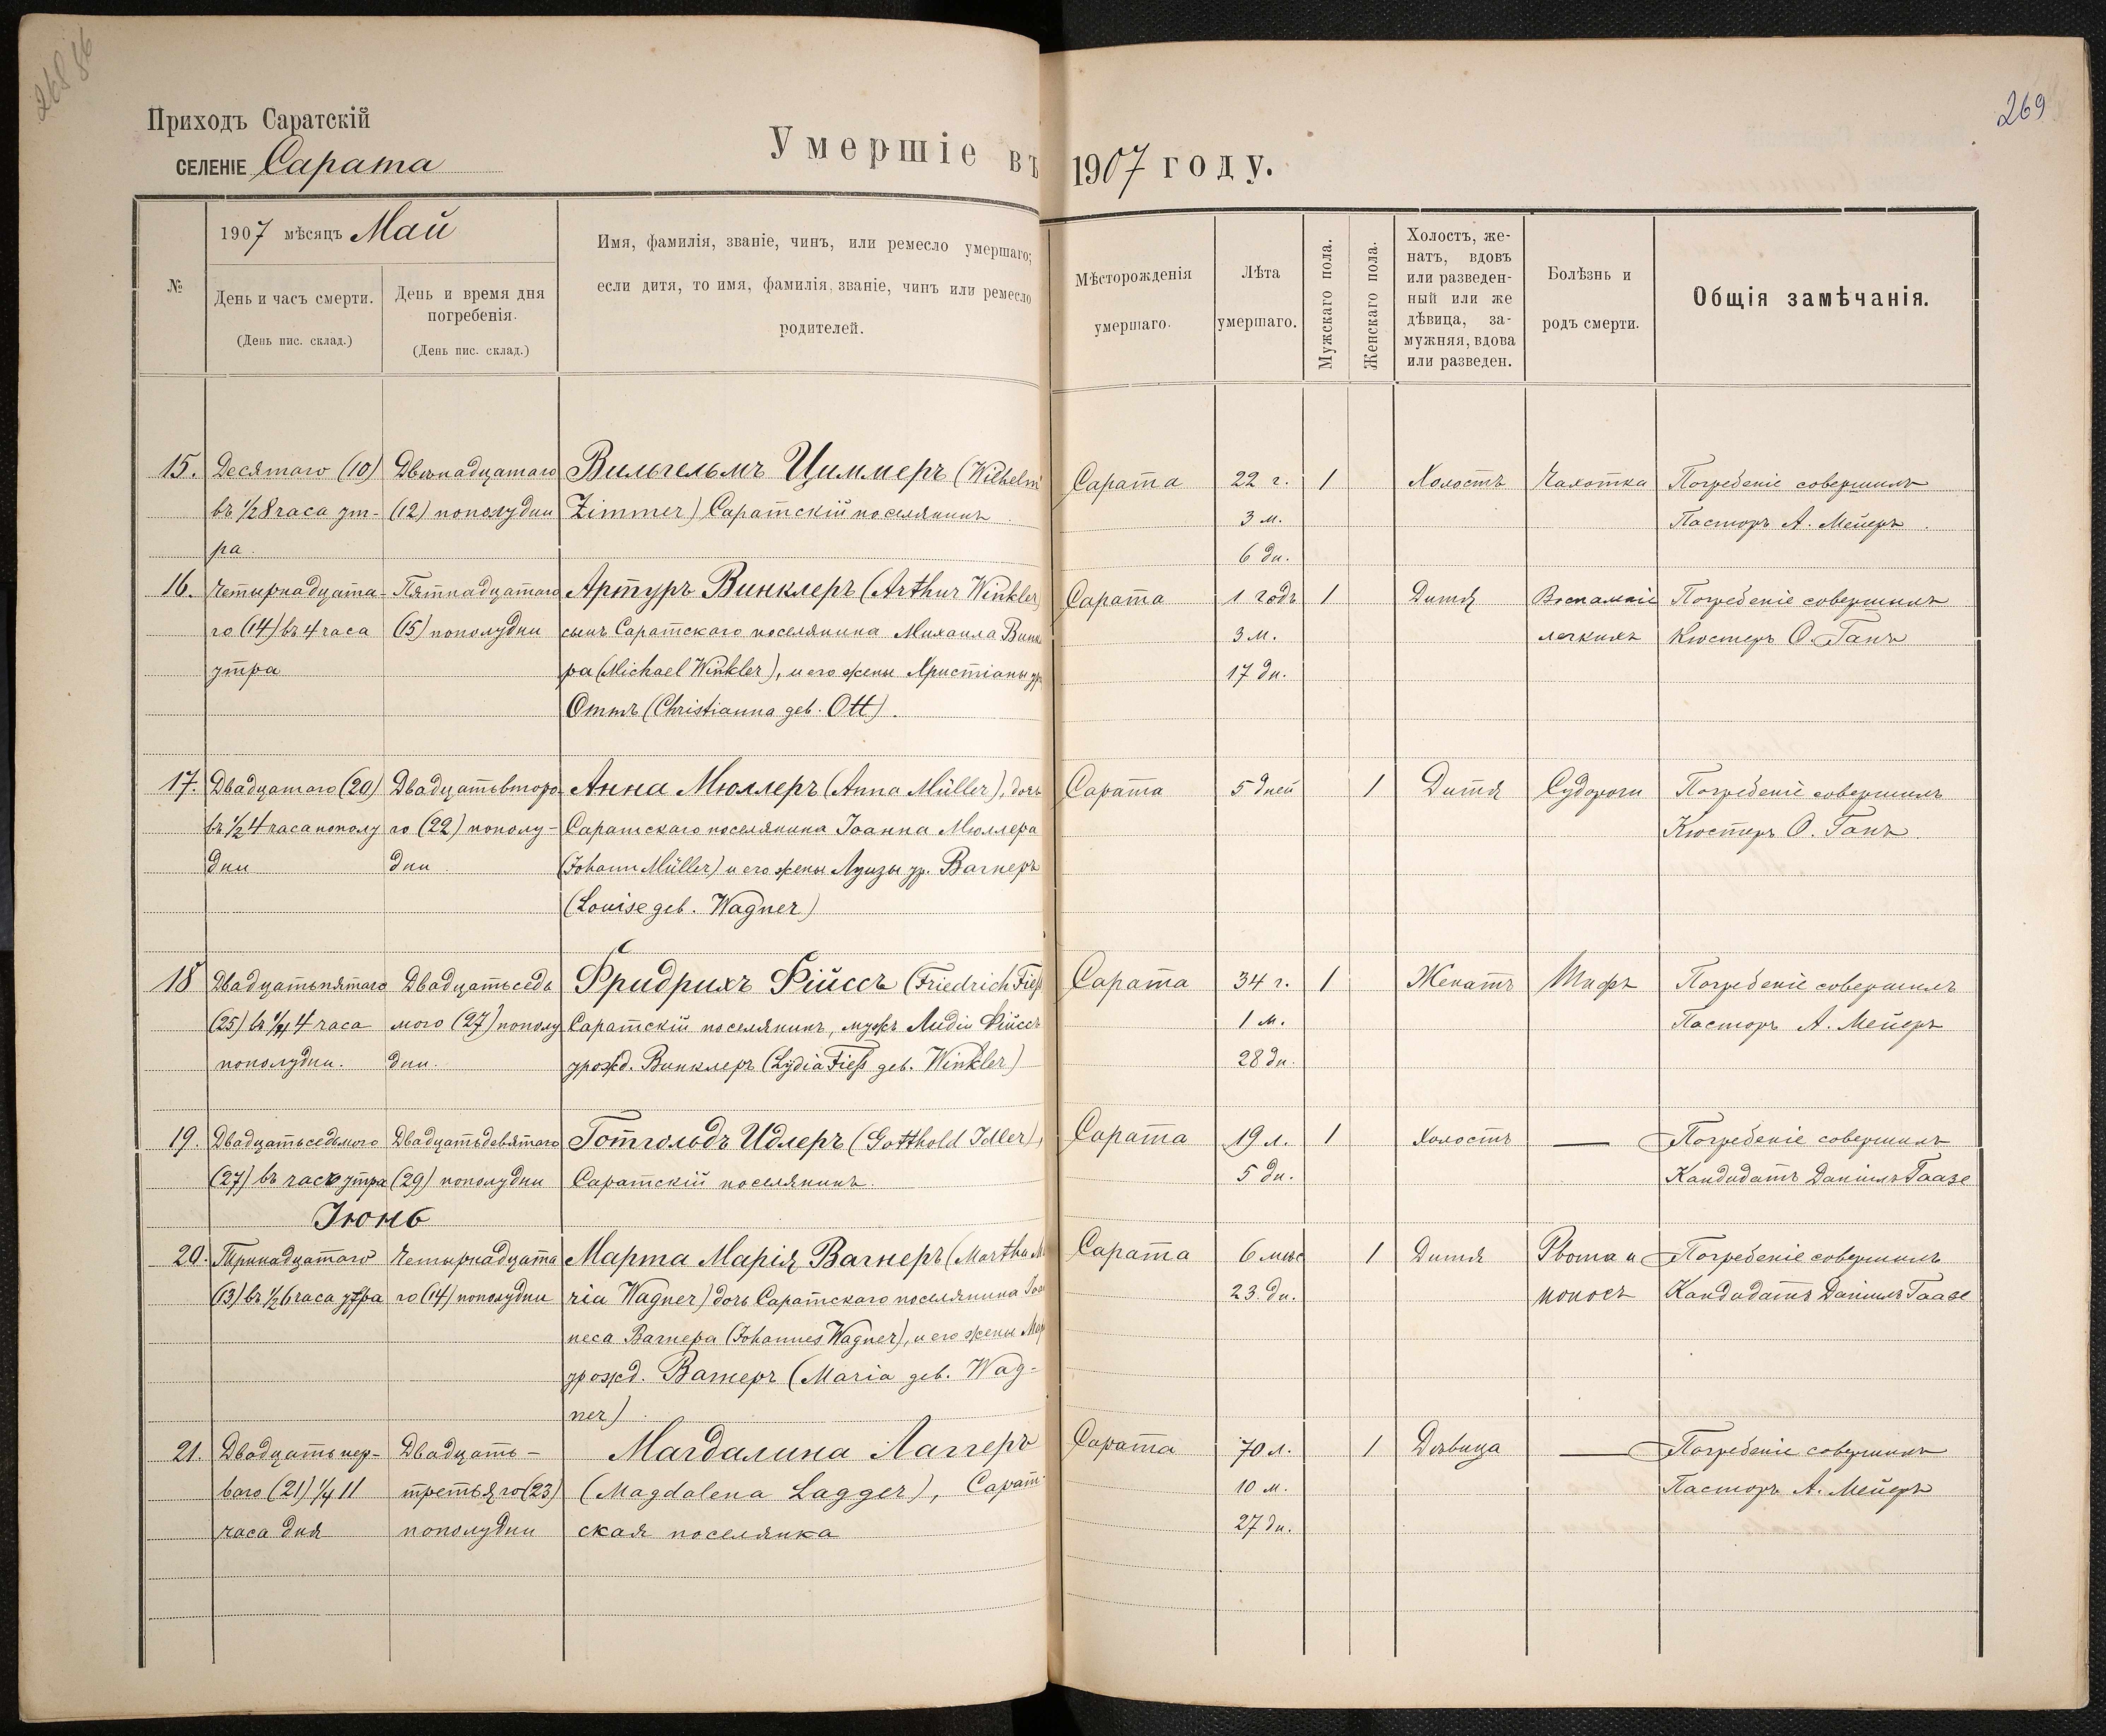 268 86
269
Приходъ Саратскій
СЕЛЕНІЕ Сарата
Умершіе въ 1907 году.
№
1907 мѣсяцъ Май
День и часъ смерти.
(День пис. склад.)
День и время дня
погребенія.
(День пис. склад.)
Имя, фамилія, званіе, чинъ, или ремесло умершаго;
если дитя, то имя, фамилія, званіе, чинъ или ремесло
родителей.
Мѣсторожденія
умершаго.
Лѣта
умершаго.
Мужскаго пола.
Женскаго пола.
Холостъ, же-
натъ, вдовъ
или разведен-
ный или же
дѣвица, за-
мужняя, вдова
или разведен.
Болѣзнь и
родъ смерти.
Общія замѣчанія.
15. Десятаго (10) Двѣнадцатаго Вильгельмъ Циммеръ (Wilhelm Сарата 22 г. 1 Холостъ Чахотка Погребеніе совершилъ
въ 1/2 8 часа ут- (12) пополудни Zimmer) Саратскій поселянинъ 3 м. Пасторъ А. Мейеръ.
ра. 6 дн.
16. Четырнадцата- Пятнадцатаго Артуръ Винклеръ (Arthur Winkler) Сарата 1 годъ 1 Дитя Воспаленіе Погребеніе совершилъ
го (14) въ 4 часа (15) пополудни сынъ Саратскаго поселянина Михаила Винк 3 м. легкихъ Кюстеръ О. Ганъ
утра ра (Michael Winkler), и его жены Христіаны ур. 17 дн.
Оттъ (Christianna geb. Ott).
17. Двадцатаго (20) Двадцатьвторо- Анна Мюллеръ (Anna Müller), дочь Сарата 5 дней 1 Дитя Судороги Погребеніе совершилъ
въ 1/2 4 часа пополу го (22) пополу- Саратскаго поселянина Іоанна Мюллера Кюстеръ О. Ганъ.
дни дни. (Johann Müller) и его жены Луизы ур. Вагнеръ
(Louise geb. Wagner)
18 Двадцатьпятаго Двадцатьседь Фридрихъ Фійссъ (Friedrich Fieß Сарата 34 г. 1 Женатъ Тифъ Погребеніе совершилъ
(25) въ 1/4 4 часа мого (27) пополу Саратскій поселянинъ, мужъ Лидіи Фійссъ 1 м. Пасторъ А. Мейеръ
пополудни. дни. урожд. Винклеръ (Lydia Fieß geb. Winkler) 28 дн.
19. Двадцатьседьмого Двадцатьдевятаго Готтольдъ Идлеръ (Gotthold Idler), Сарата 19 л. 1 Холостъ — Погребеніе совершилъ
(27) въ часъ утра (29) пополудни Саратскій поселянинъ. 5 дн. Кандидатъ Даніилъ Гаазе
Іюнь
20. Тринадцатаго Четырнадцата Марта Марія Вагнеръ (Martha Ma Сарата 6 мѣс 1 Дитя Рвота и Погребеніе совершилъ
(13) въ 1/2 6 часа утра го (14) пополудни ria Wagner) дочь Саратскаго поселянина Іоан 23 дн. поносъ Кандидатъ Даніилъ Гаазе
неса Вагнера (Johannes Wagner), и его жены Мар
урожд. Вагнеръ (Maria geb. Wag-
ner).
21. Двадцатьпер- Двадцать- Магдалина Лаггеръ Сарата 70 л. 1 Дѣвица — Погребеніе совершилъ
ваго (21) 1/4 11 третьяго (23) (Magdalena Lagger), Сарат- 10 м. Пасторъ А. Мейеръ
часа дня пополудни ская поселянка 27 дн.